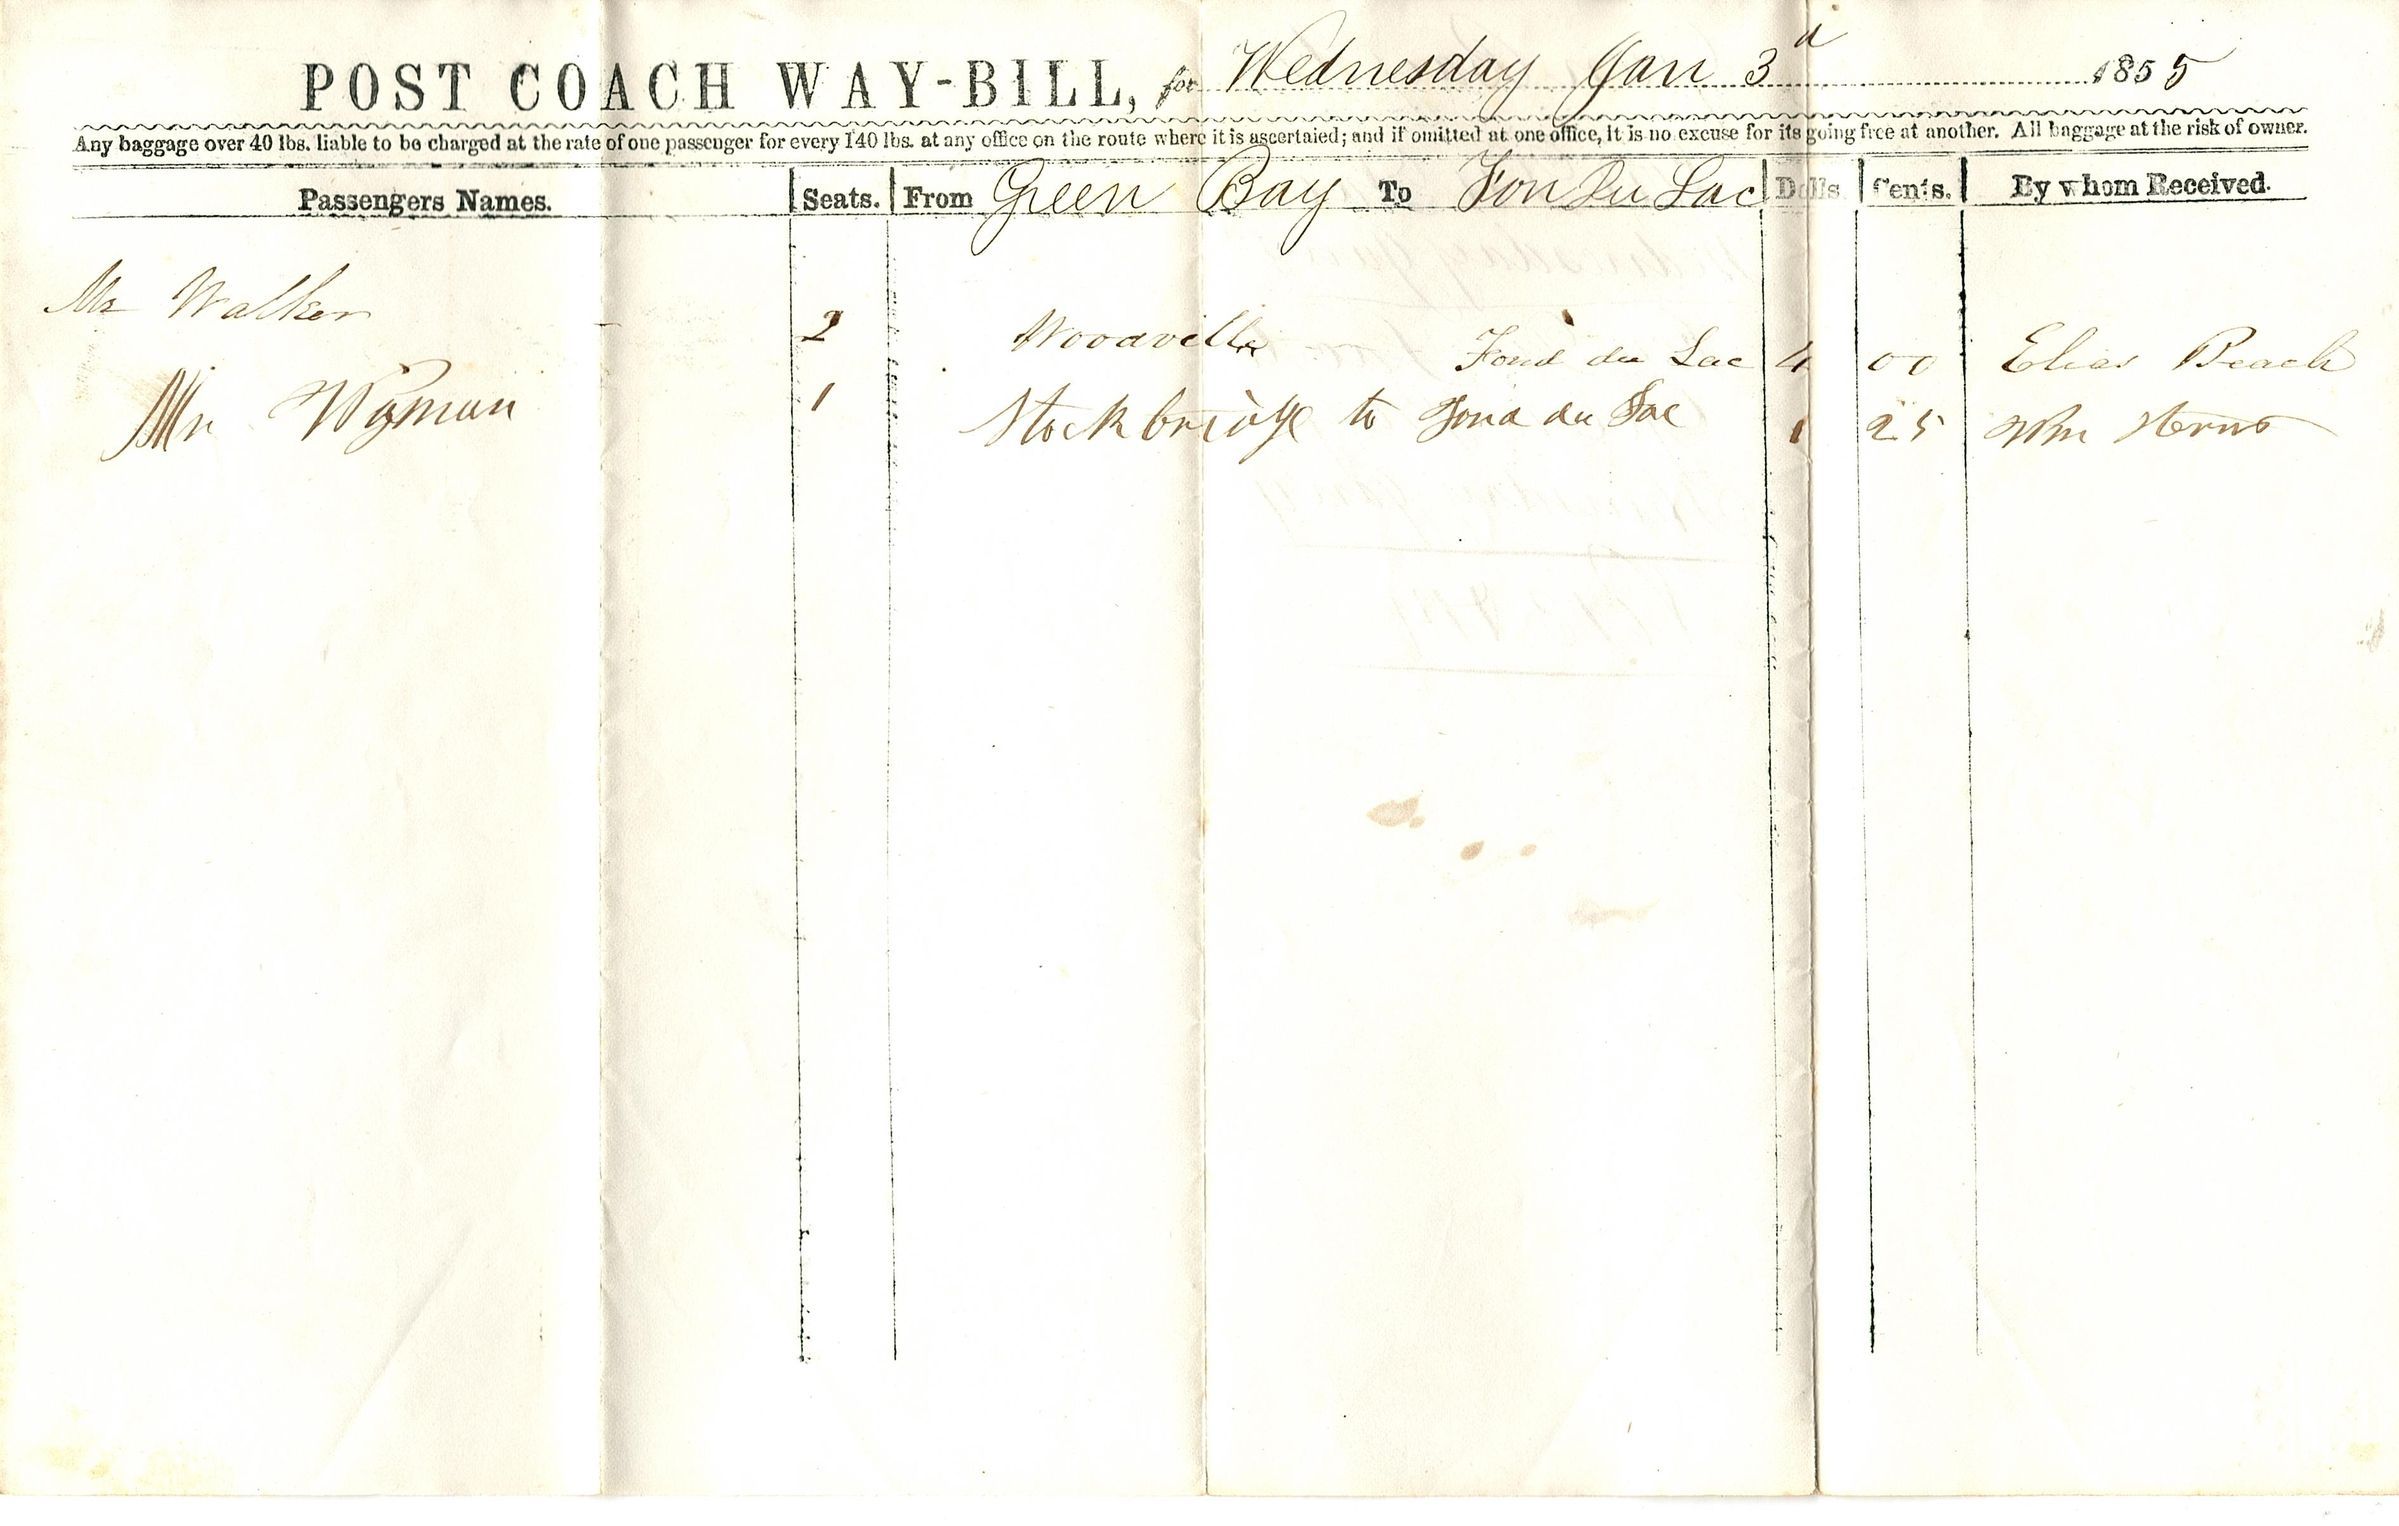 POST COACH WAY-BILL, for Wednesday Jan 3d 1855
Any baggage over 40 lbs. liable to be charged at the rate of one passenger for every 140 lbs. at any office on the route where it is ascertaied; and if omitted at one office, it is no excuse for its going free at another. All baggage at the risk of owner.
Passengers Names. Seats. From Green Bay To Fon Du Lac Dolls Cents. By whom Received.
Mr Walker 2 Woodville Fond du Lac 4 00 Elias Beach
Mr Wyman 1 Stockbridge to Fond du Lac 1 25 Wm